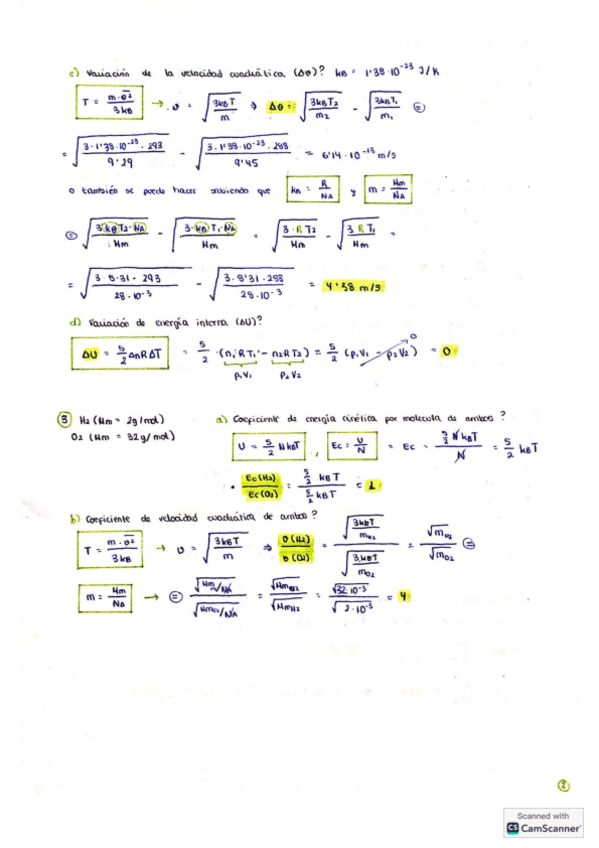 c) Variación de la velocidad cuadrática (Δv)? kB = 1'38·10⁻²³ J/K
T = m·v̄²/3kB → v = √(3kBT/m) ⇒ Δv = √(3kBT₂/m₂) - √(3kBT₁/m₁) ⊜
= √(3·1'38·10⁻²³·293/9'29) - √(3·1'38·10⁻²³·288/9'45) = 6'14·10⁻¹³ m/s
o también se puede hacer sabiendo que kB = R/NA y m = Mm/NA
⊜ √(3·kB·T₂·NA/Mm) - √(3·kB·T₁·NA/Mm) = √(3·R T₂/Mm) - √(3 R T₁/Mm) =
= √(3·8'31·293/28·10⁻³) - √(3·8'31·288/28·10⁻³) = 4'38 m/s
d) Variación de energía interna (ΔU)?
ΔU = 5/2 ΔnRΔT = 5/2 ·(n₁RT₁ - n₂RT₂) = 5/2 (p₁V₁ - p₂V₂) 0 = 0
p₁V₁ p₂V₂
3 H₂ (Mm = 2g/mol) a) Coeficiente de energía cinética por molecula de ambos?
O₂ (Mm = 32g/mol)
U = 5/2 NkBT , Ec = U/N = Ec = 5/2 N kBT/N = 5/2 kBT
• Ec(H₂)/Ec(O₂) = 5/2 kBT / 5/2 kBT = 1
b) Coeficiente de velocidad cuadrática de ambos?
T = m·v̄²/3kB → v = √(3kBT/m) ⇒ v(H₂)/v(O₂) = √(3kBT/mH₂) / √(3kBT/mO₂) = √mH₂/√mO₂ ⊜
m = Mm/NA → ⊜ √(Mm/NA)/√(MmO₂/NA) = √MmO₂/√MmH₂ = √32·10⁻³/√2·10⁻³ = 4
2
Scanned with
CS CamScanner